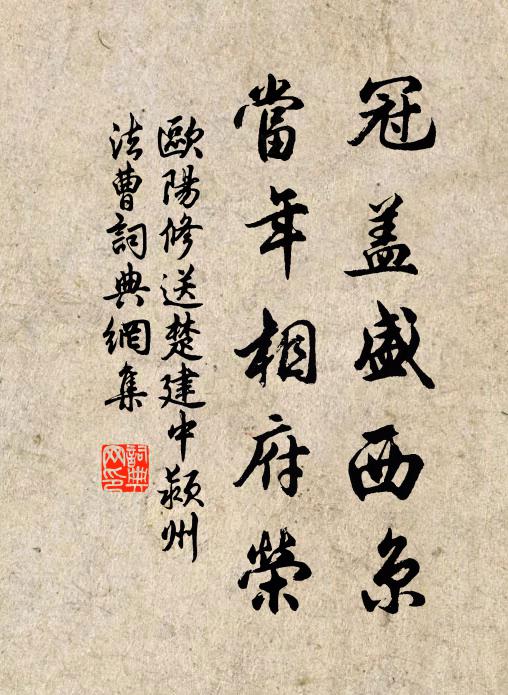 冠盖盛西京
當年相府榮
歐陽修送楚建中潁州
法曹詞典網集
詞典
网印